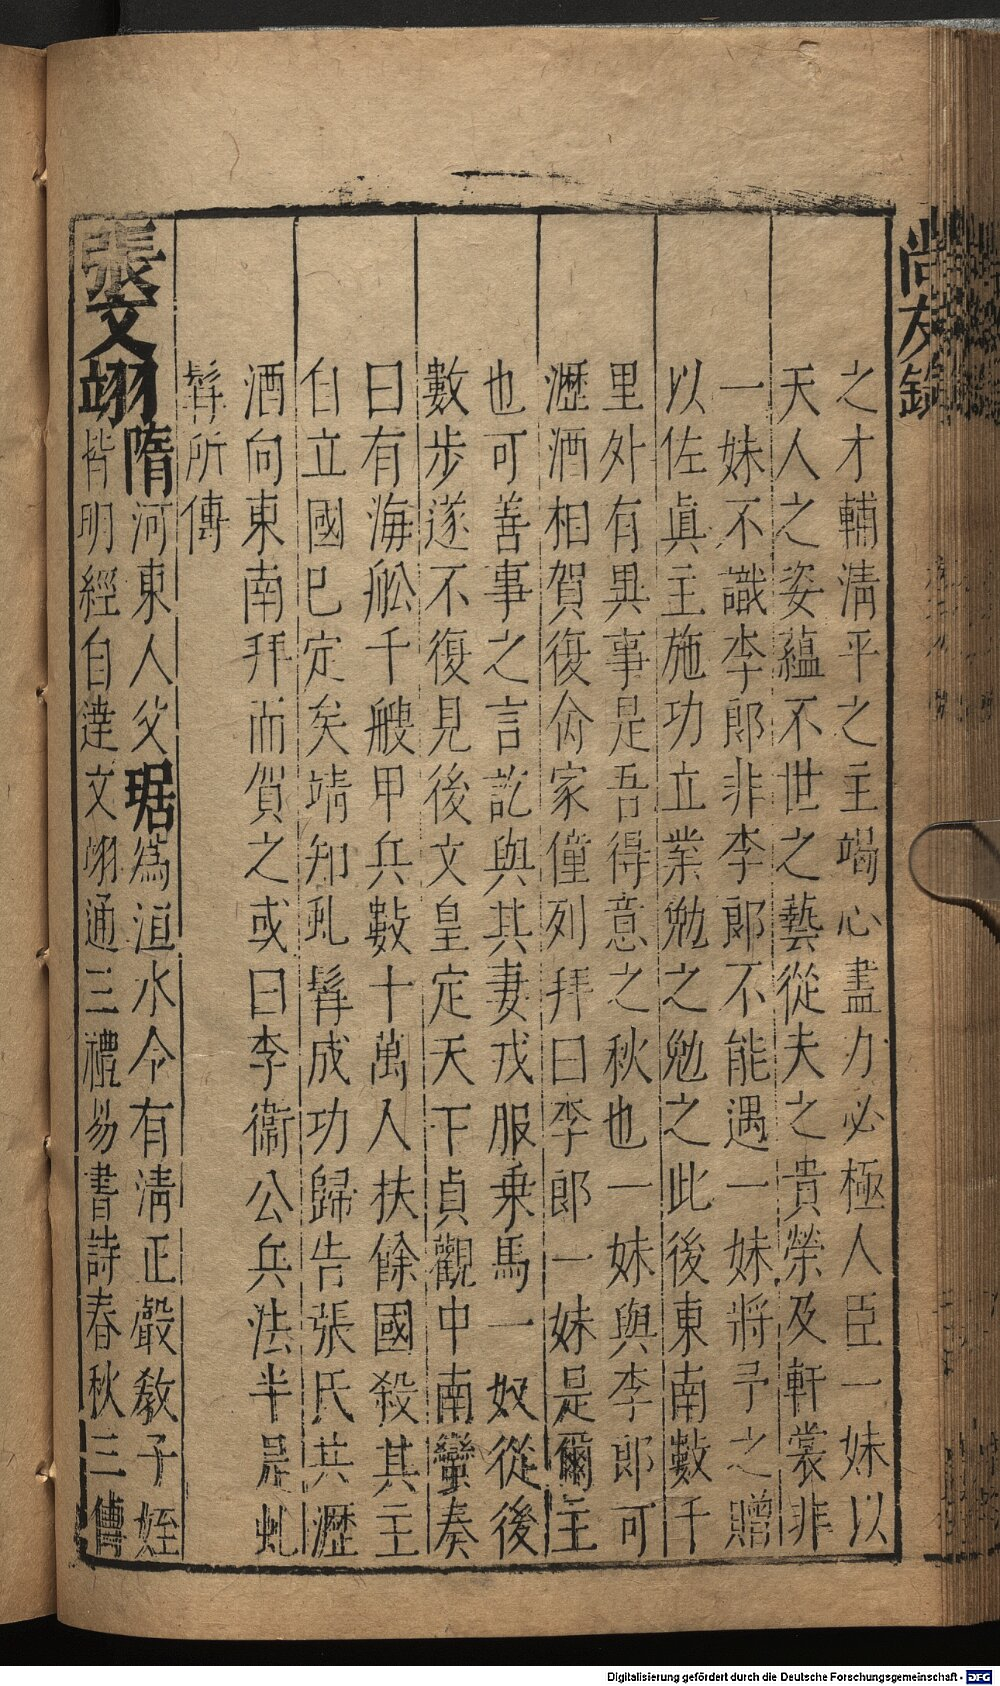 尚友錄
之才輔淸平之主竭心盡力必極人臣一妹以
天人之姿蘊不世之藝從夫之貴榮及軒裳非
一妹不識李郎非李郎不能遇一妹將予之贈
以佐眞主施功立業勉之勉之此後東南數千
里外有異事是吾得意之秋也一妹與李郎可
瀝酒相賀復命家僮列拜曰李郎一妹是爾主
也可善事之言訖與其妻戎服乗馬一奴從後
數步遂不復見後文皇定天下貞觀中南蠻奏
曰有海舩千艘甲兵數十萬人扶餘國殺其主
自立國已定矣靖知虬髯成功歸告張氏共瀝
酒向東南拜而賀之或曰李衞公兵法半是虬
髯所傳
張文翊隋河東人父琚爲洹水令有淸正嚴敎子姪
皆明經自達文翊通三禮易書詩春秋三傳
Digitalisierung gefördert durch die Deutsche Forschungsgemeinschaft - DFG